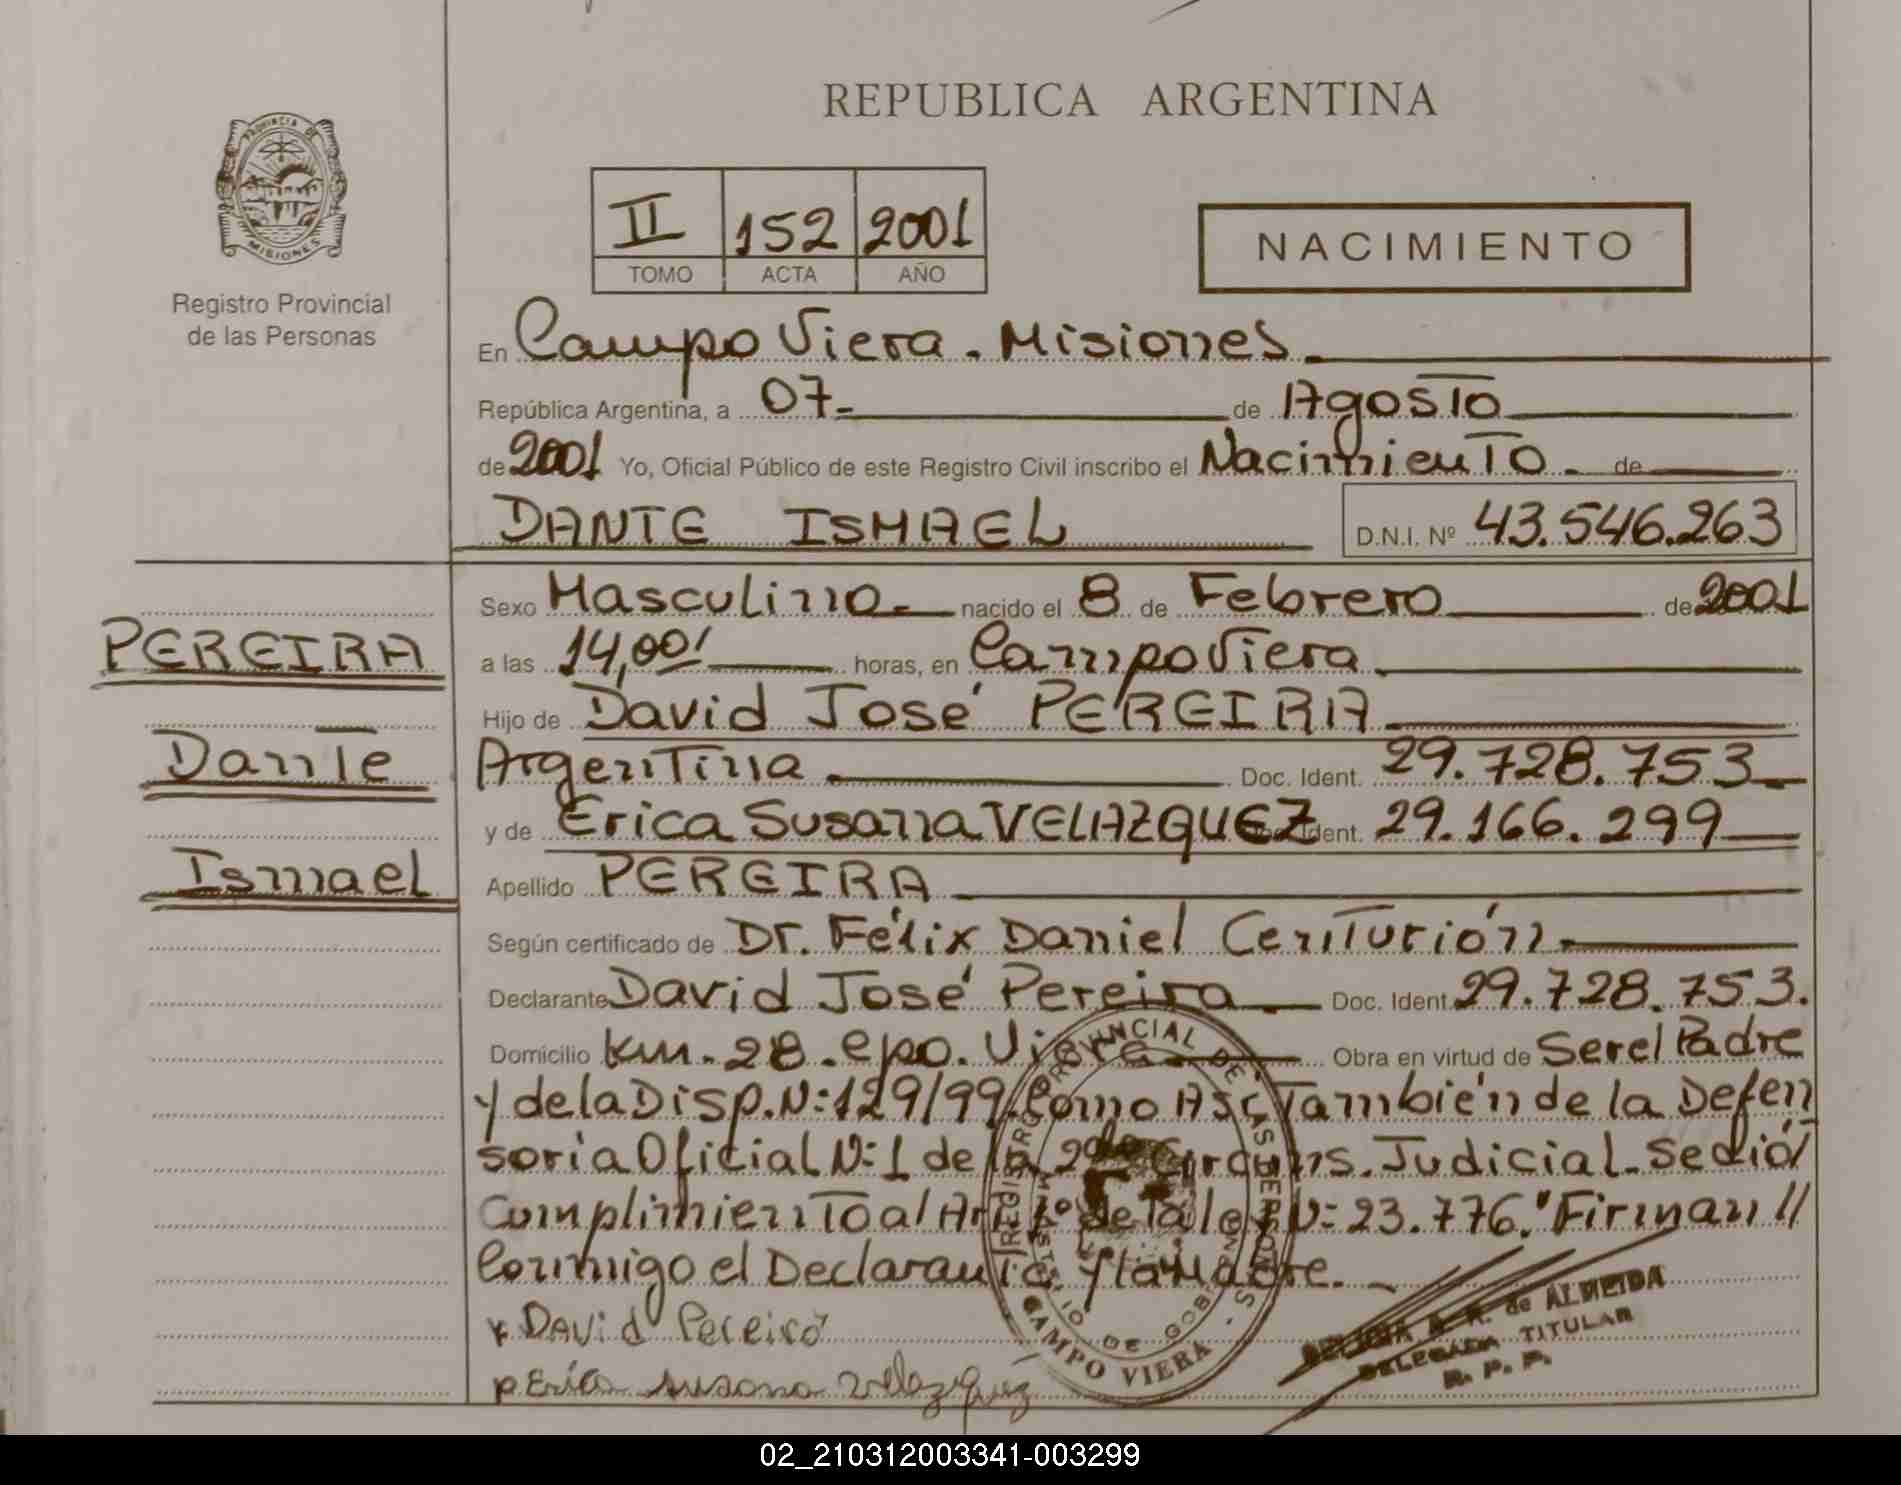 REPUBLICA ARGENTINA
PROVINCIA DE
MISIONES
Registro Provincial
de las Personas
II 152 2001
TOMO ACTA AÑO
NACIMIENTO
En Campo Viera. Misiones
República Argentina, a 07- de Agosto
de 2001 Yo, Oficial Público de este Registro Civil inscribo el Nacimiento. de
DANTE ISMAEL D.N.I. Nº 43.546.263
Sexo Masculino nacido el 8 de Febrero de 2001
PEREIRA
a las 14,00' horas, en Campo Viera
Hijo de David José PEREIRA
Dante
Argentina Doc. Ident. 29.728.753
y de Erica Susana VELAZQUEZ Doc. Ident. 29.166.299
Ismael
Apellido PEREIRA
Según certificado de Dr. Félix Daniel Centurión
Declarante David José Pereira Doc. Ident. 29.728.753.
Domicilio Km. 28. Cpo. Viera Obra en virtud de Ser el Padre
y de la Disp. N: 129/99 Como Así También de la Defen
soria Oficial N: 1 de la 2da Circuns. Judicial. Se dió
Cumplimiento al Art. 1º de la ley N: 23.776." Firman //
Conmigo el Declarante y la Madre.
REGISTRO PROVINCIAL DE LAS PERSONAS
MINISTERIO DE GOBIERNO
CAMPO VIERA
David Pereira
Erica Susana Velazquez
de ALMEIDA
DELEGADA TITULAR
R. P. P.
02_210312003341-003299